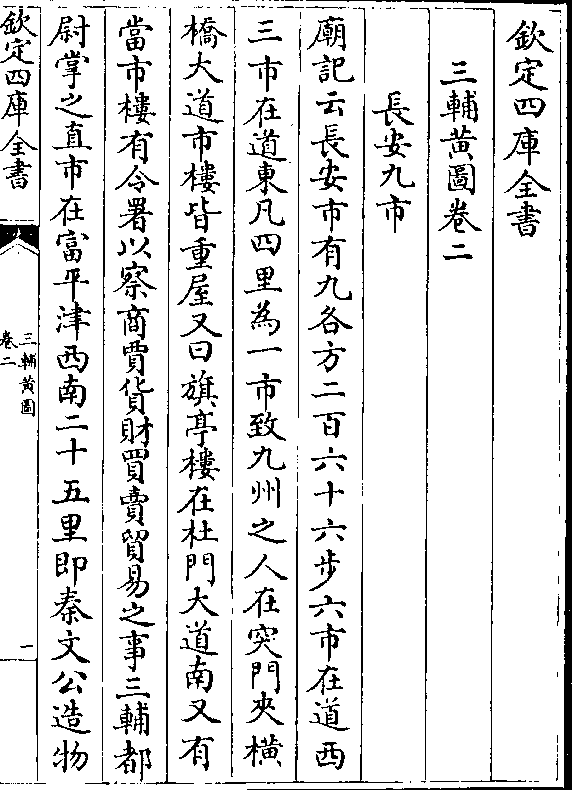 欽定四庫全書
三輔黃圖卷二
長安九市
廟記云長安市有九各方二百六十六步六市在道西
三市在道東凡四里為一市致九州之人在突門夾橫
橋大道市樓皆重屋又曰旗亭樓在杜門大道南又有
當市樓有令署以察商賈貨財買賣貿易之事三輔都
尉掌之直市在富平津西南二十五里即秦文公造物
欽定四庫全書
三輔黃圖
卷二
一